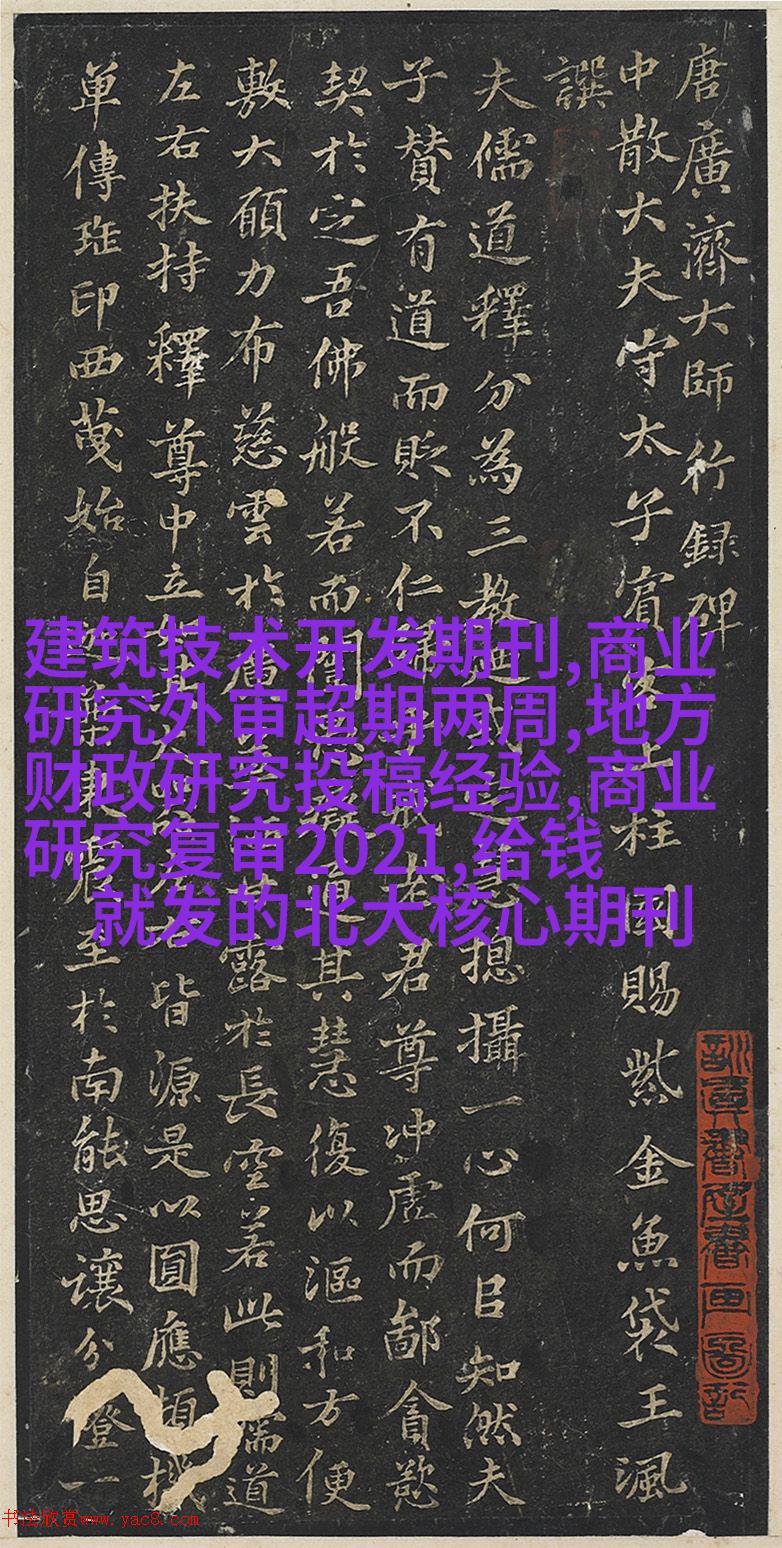 唐廣濟大師行録碑
中散大夫守太子賓客上柱國賜紫金魚袋王渢
譔
夫儒道釋分為三教摠攝一心何㠯知然夫
子賛有道而貶不仁老君尊冲虛而鄙貪慾
契於空吾佛般若而闡其慧復以漚和方便
敷大願力布慈雲於露於長空若此則儒道
左右扶持釋尊中立皆源是以圓應頓機
單傳印西始自至於南能思讓分燈一
建筑技术开发期刊,商业
研究外审超期两周,地方
财政研究投稿经验,商业
研究复审2021,给钱
就发的北大核心期刊
书法欣赏www.yac8.com